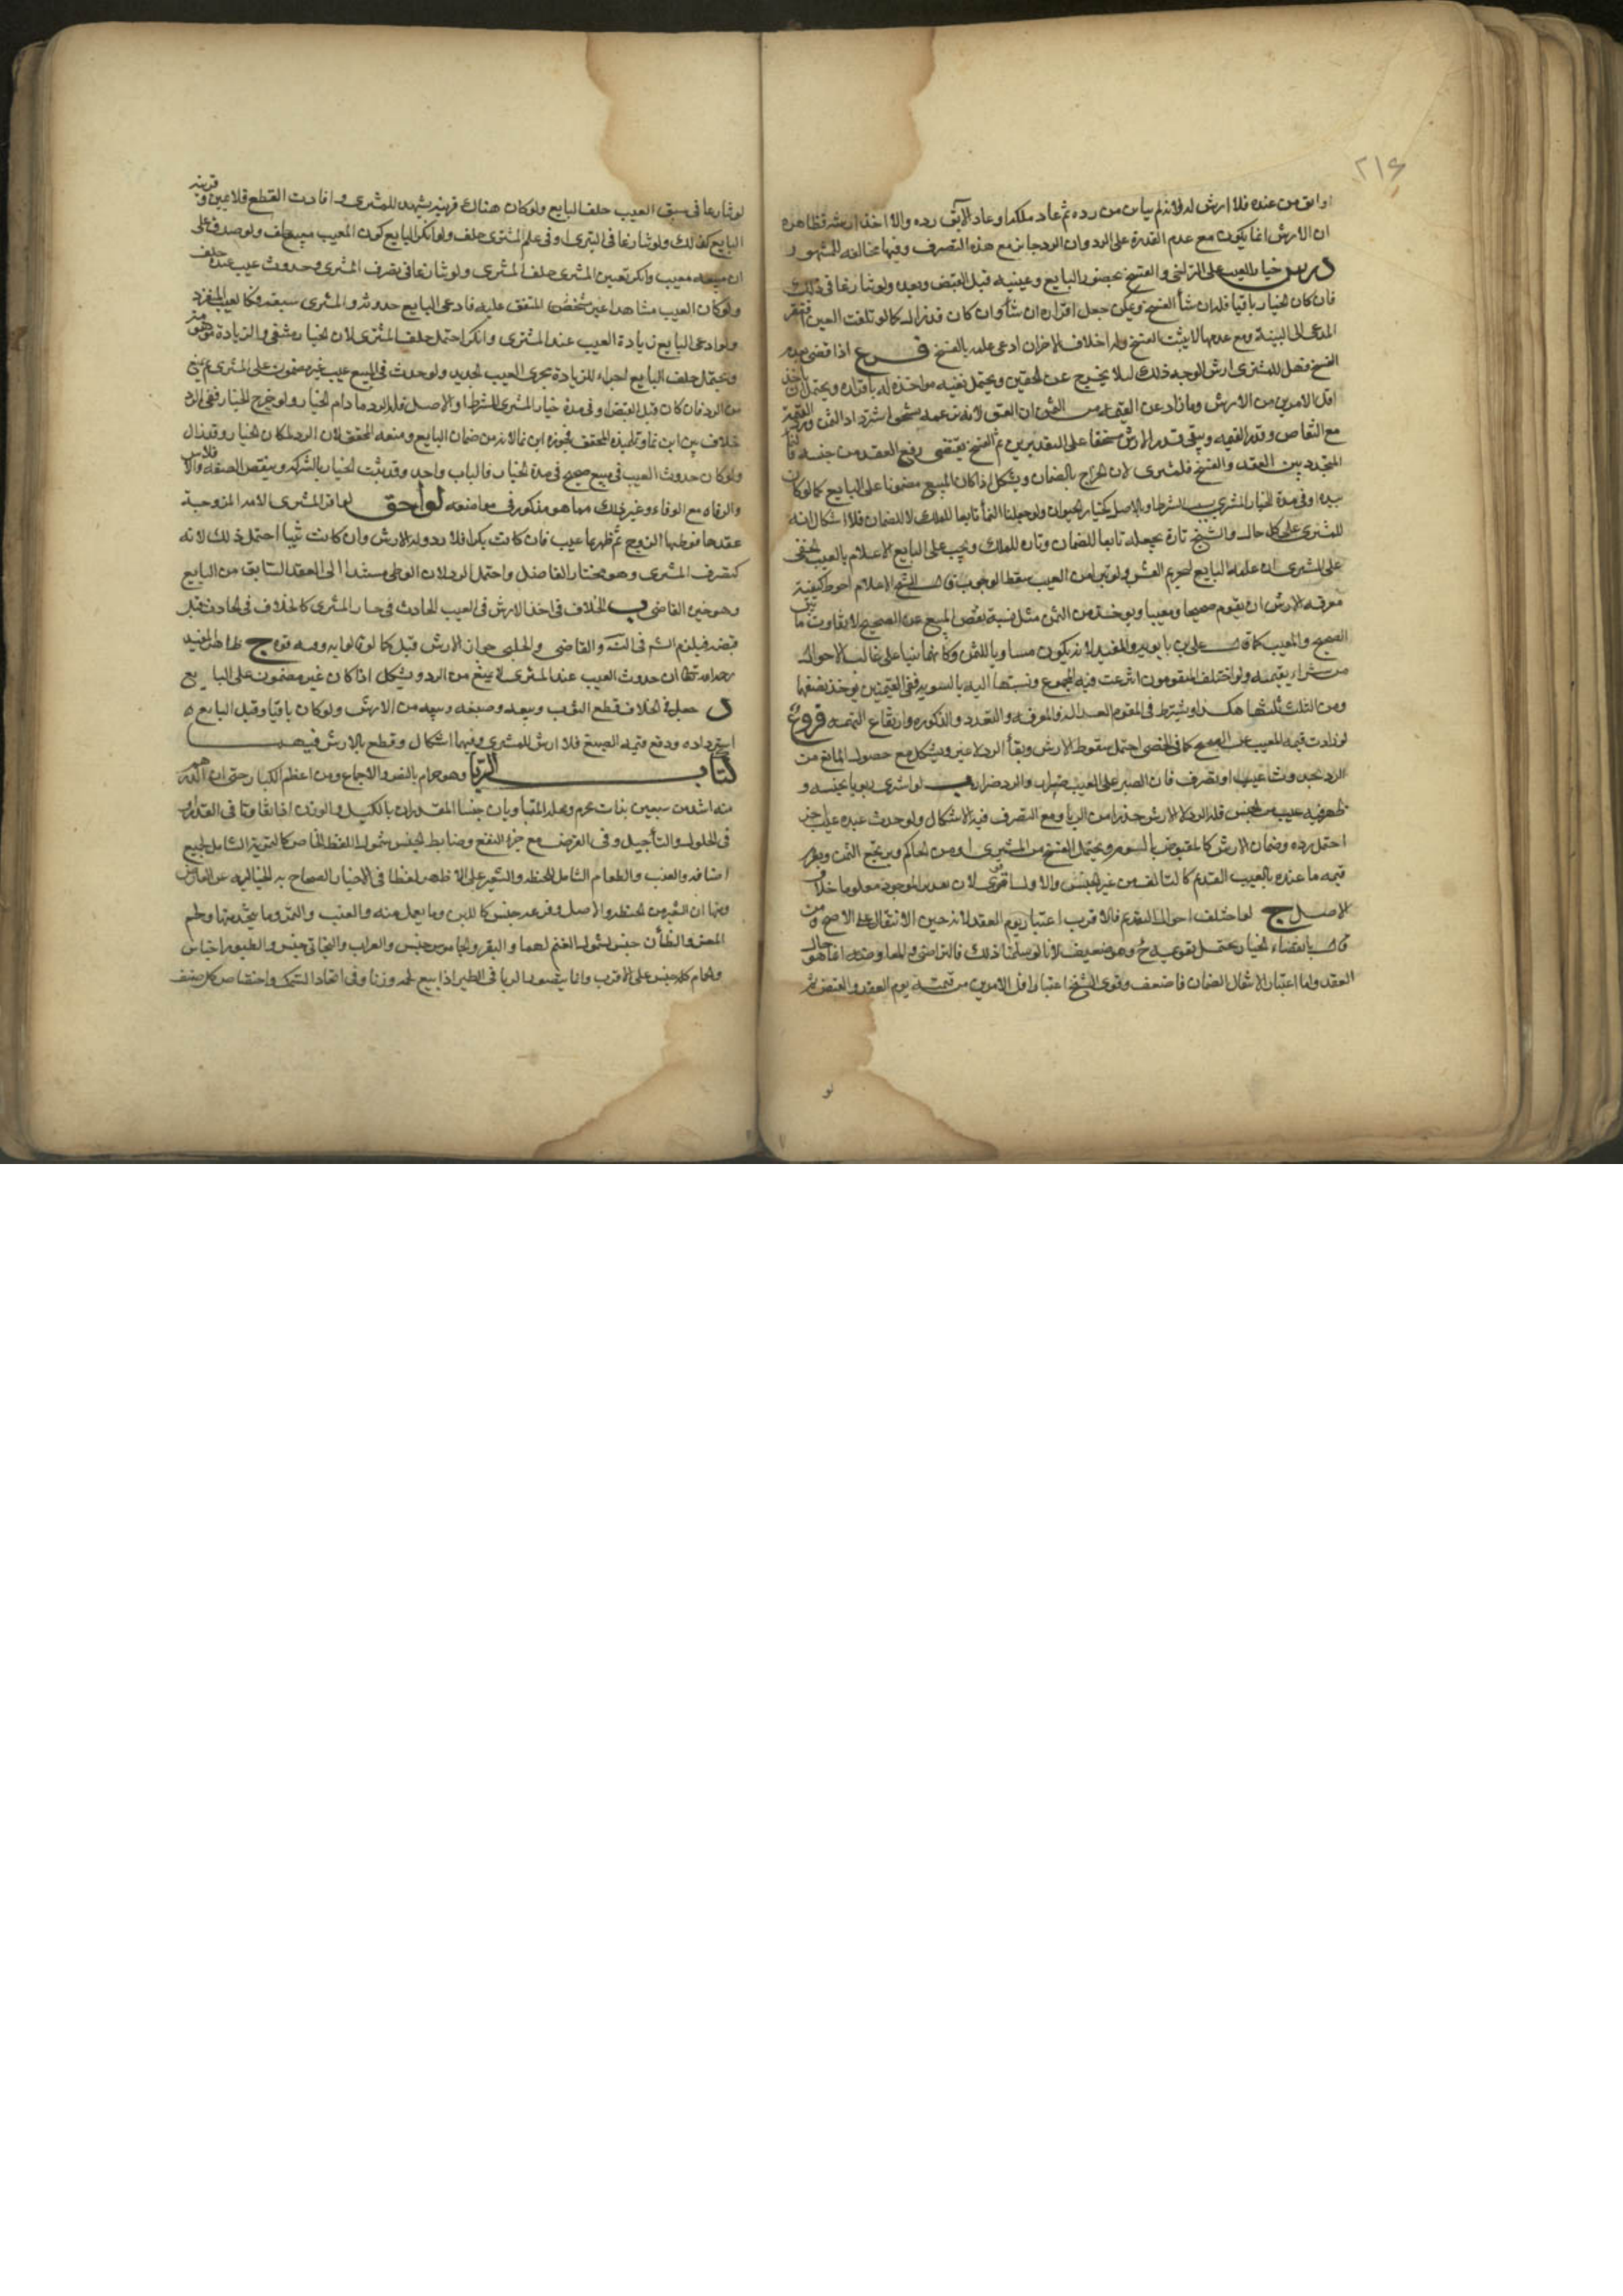 ٢١۶
او ابق من عنده فلا ارش له لانه لم ييأس من رده ثم عاد ملكه او عاد الآبق رده والا اخذ ارشه فظاهره
ان الارش انما يكون مع عدم القدرة على الرد وان الرد جايز مع هذه التصرف وفيها مخالفة للمشهور
درس خيار العيب على التراخي والفسخ بحضور البايع وغيبته قبل القبض وبعده ولو تنازعا في ذلك
فان كان الخيار باقيا فله ان شأ الفسخ ويمكن جعل اقراره ان شأ وان كان قد زال كما لو تلفت العين افتقر
المدعى الى البينة ومع عدمها لا يثبت الفسخ وله احلاف الاخر ان ادعى علمه بالفسخ فرع اذا قضى بعدم
الفسخ فهل للمشترى ارش الوجه ذلك ليلا يخرج عن الحقين ويحتمل نفيه مواخذة له باقراره ويحتمل ان ياخذ
اقل الامرين من الارش وما زاد عن القيمة من الثمن ان اتفق لانه بزعمه يستحق استرداد الثمن ورد القيمة
مع التقاص وقدر القيمة ويبقى قدر الارش مستحقا على التقديرين ثم الفسخ يقتضى رفع العقد من حينه فالنماء
المتجدد بين العقد والفسخ فللمشترى لان الخراج بالضمان ويشكل اذا كان المبيع مضمونا على البايع كما لو كان
بيده او في مدة الخيار المشترى بسبب الشرط او بالاصل كخيار الحيوان ولو جعلنا النمأ تابعا للملك لا للضمان فلا اشكال انه
للمشترى على كل حال والشيخ تارة يجعله تابعا للضمان وتارة للملك ويجب على البايع الاعلام بالعيب الخفى
على المشترى ان علمه البايع لتحريم الغش ولو تبرا من العيب سقط الوجوب قال الشيخ الاعلام احوط كيفية
معرفة الارش ان يقوم صحيحا ومعيبا ويوخذ من الثمن مثل نسبة نقص المعيب عن الصحيح لا تفاوت ما بين
الصحيح والمعيب كما قال على بن بابويه والمفيد لانه يكون مساويا للثمن وكانهما بنيا على غالب الاحوال
من شراء بقيمته ولو اختلف المقومون انتزعت قيمة المجموع ونسبتها اليه بالسوية فمن القيمتين يوخذ نصفها
ومن الثلث ثلثها هكذا ويشترط في المقوم العدالة والمعرفة والتعدد والذكورة وارتفاع التهمة فروع
لو زادت قيمة المعيب عن الصحيح كما في الخصى احتمل سقوط الارش وبقأ الرد لا غير ويشكل مع حصول المانع من
الرد بحدوث عيب او تصرف فان الصبر على العيب ضرار والرد ضرار ب لو اشترى ربويا بجنسه و
ظهر فيه عيب من الجنس فله الرد لا الارش حذرا من الربا ومع التصرف فيه الاشكال ولو حدث عنده عيب اخر
احتمل رده وضمان الارش كالمقبوض بالسوم ويحتمل الفسخ من المشترى او من الحاكم ويرتجع الثمن ويغرم
قيمة ما عنده بالعيب القديم كالتالف من غير الجنس والاول اقوى لان تقدير الموجود معدوما خلاف
الاصل ج لو اختلف احوال التقويم فالاقرب اعتبار يوم العقد لانه حين الانتقال على الاصح ومن
قال بانقضاء الخيار يحتمل تقويمه ح وهو ضعيف لانا لو سلمنا ذلك فالتراضى والمعاوضة انما هو حال
العقد واما اعتبار الانتقال الضمان فاضعف وقوى الشيخ اعتبار اقل الامرين من قيمته يوم العقد والقبض
لو
لو تنازعا في سبق العيب حلف البايع ولو كان هناك قرينة يشهد للمشترى وافادت القطع فلا يمين وقرينة
البايع كذلك ولو تنازعا في التبرى او في علم المشترى حلف ولو انكر البايع كون المعيب مبيعه حلف ولو صدقه على
ان مبيعه معيب وانكر تعيين المشترى حلف المشترى ولو تنازعا في تصرف المشترى وحدوث عيب عنده حلف
ولو كان العيب مشاهدا غير المتفق عليه فادعى البايع حدوثه والمشترى سبقه فكالعيب المنفرد
ولو ادعى البايع زيادة العيب عند المشترى وانكر احتمل حلف المشترى لان الخيار متيقن والزيادة موهومة
ويحتمل حلف البايع اجراء للزيادة مجرى العيب الجديد ولو حدث في المبيع عيب غير مضمون على المشترى لم يمنع
من الرد فان كان قبل القبض او في مدة خيار المشترى المشترط او الاصل فله الرد ما دام الخيار ولو خرج الخيار ففى الرد
خلاف بين ابن نما وتلميذه المحقق فجوزه ابن نما لانه من ضمان البايع ومنعه المحقق لان الرد لمكان الخيار وقد زال
ولو كان حدوث العيب في مبيع صحيح في مدة الخيار فالباب واحد وقد يثبت الخيار بالشركة وبنقص الصفة والافلاس
والوفاه مع الوفاء وغير ذلك مما هو مذكور في مواضعه لواحق لو اقر المشترى الامة المزوجة
عقدها فوطيها الزوج ثم ظهر بها عيب فان كانت بكرا فلا رد وله الارش وان كانت ثيبا احتمل ذلك لانه
كتصرف المشترى وهو مختار الفاضل واحتمل الرد لان الوطى مستندا الى العقد السابق من البايع
وهو خيرة القاضى ب الخلاف في اخذ الارش في العيب الحادث في خيار المشترى كالخلاف في الحادث قبل
قبضه فيلزم الشيخ في النهاية والقاضى والحلبى جواز الارش قبل كما لو قالوا به وفيه قوة ج ظاهر المفيد
رحمه الله تعالى ان حدوث العيب عند المشترى لا يمنع من الرد ويشكل اذا كان غير مضمون على البايع
د جعل في الخلاف قطع الثوب وبيعه وصبغه وبيعه من الارش ولو كان باقيا وقبل البايع
استرداده ودفع قيمة الصبغ فلا ارش للمشترى وفيهما اشكال وقطع بالارش فيهما
كتاب الربا وهو حرام بالنص والاجماع ومن اعظم الكبائر حتى ان الدرهم
منه اشد من سبعين بذات محرم ومحله المتساويان جنسا المقدران بالكيل والوزن اذا تفاوتا في القدر او
في الحلول والتأجيل وفى القرض مع جرة النفع وضابط الجنس شمول اللفظ الخاص كالتمر الشامل لجميع
اصنافه والعنب والطعام الشامل للحنطه والشعير على الاظهر لفظا في الاخبار الصحاح به
ومنها ان الشعير من الحنطه والاصل وفرعه جنس كاللبن وما يعمل منه والعنب والتمر وما يتخذ منهما ولحم
المعز والضأن جنس لشمول الغنم لهما والبقر والجاموس جنس والعراب والبخاتى جنس والطيور اجناس
والحمام كله جنس على الاقرب وانما يتصور الربا في الطير اذا بيع لحمه وزنا وفى اتحاد السمك واختصاص كل صنف